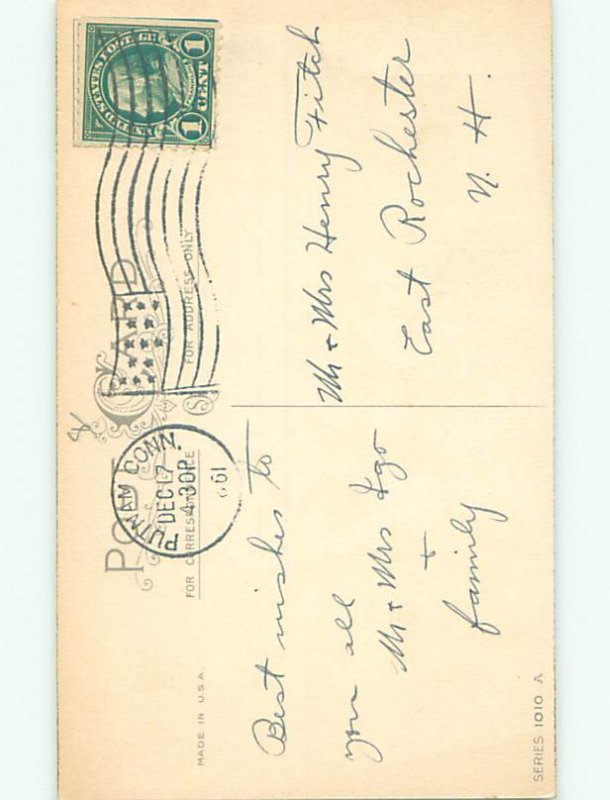 POST CARD
FOR CORRESPONDENCE
FOR ADDRESS ONLY
UNITED STATES POSTAGE
1 CENT 1
PUTNAM CONN.
DEC 17
4-30P
Best wishes to
you all
Mr & Mrs Igo
+
family
Mr & Mrs Henry Fitch
East Rochester
N. H.
MADE IN U.S.A.
SERIES 1010 A